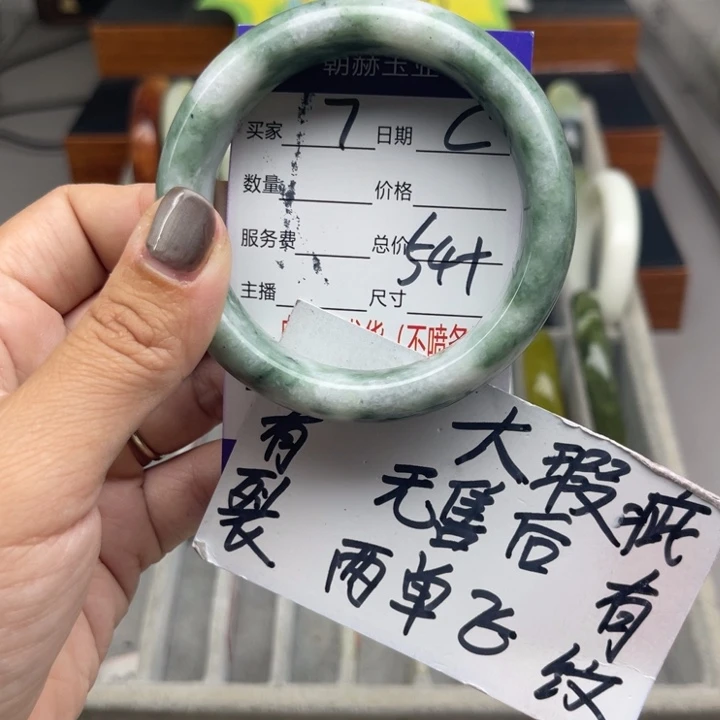 朝赫玉业
买家 7 日期 C
数量 价格
服务费 总价 54+
主播 尺寸
货(不喷
大瑕疵有纹
有裂
无售后
两单飞